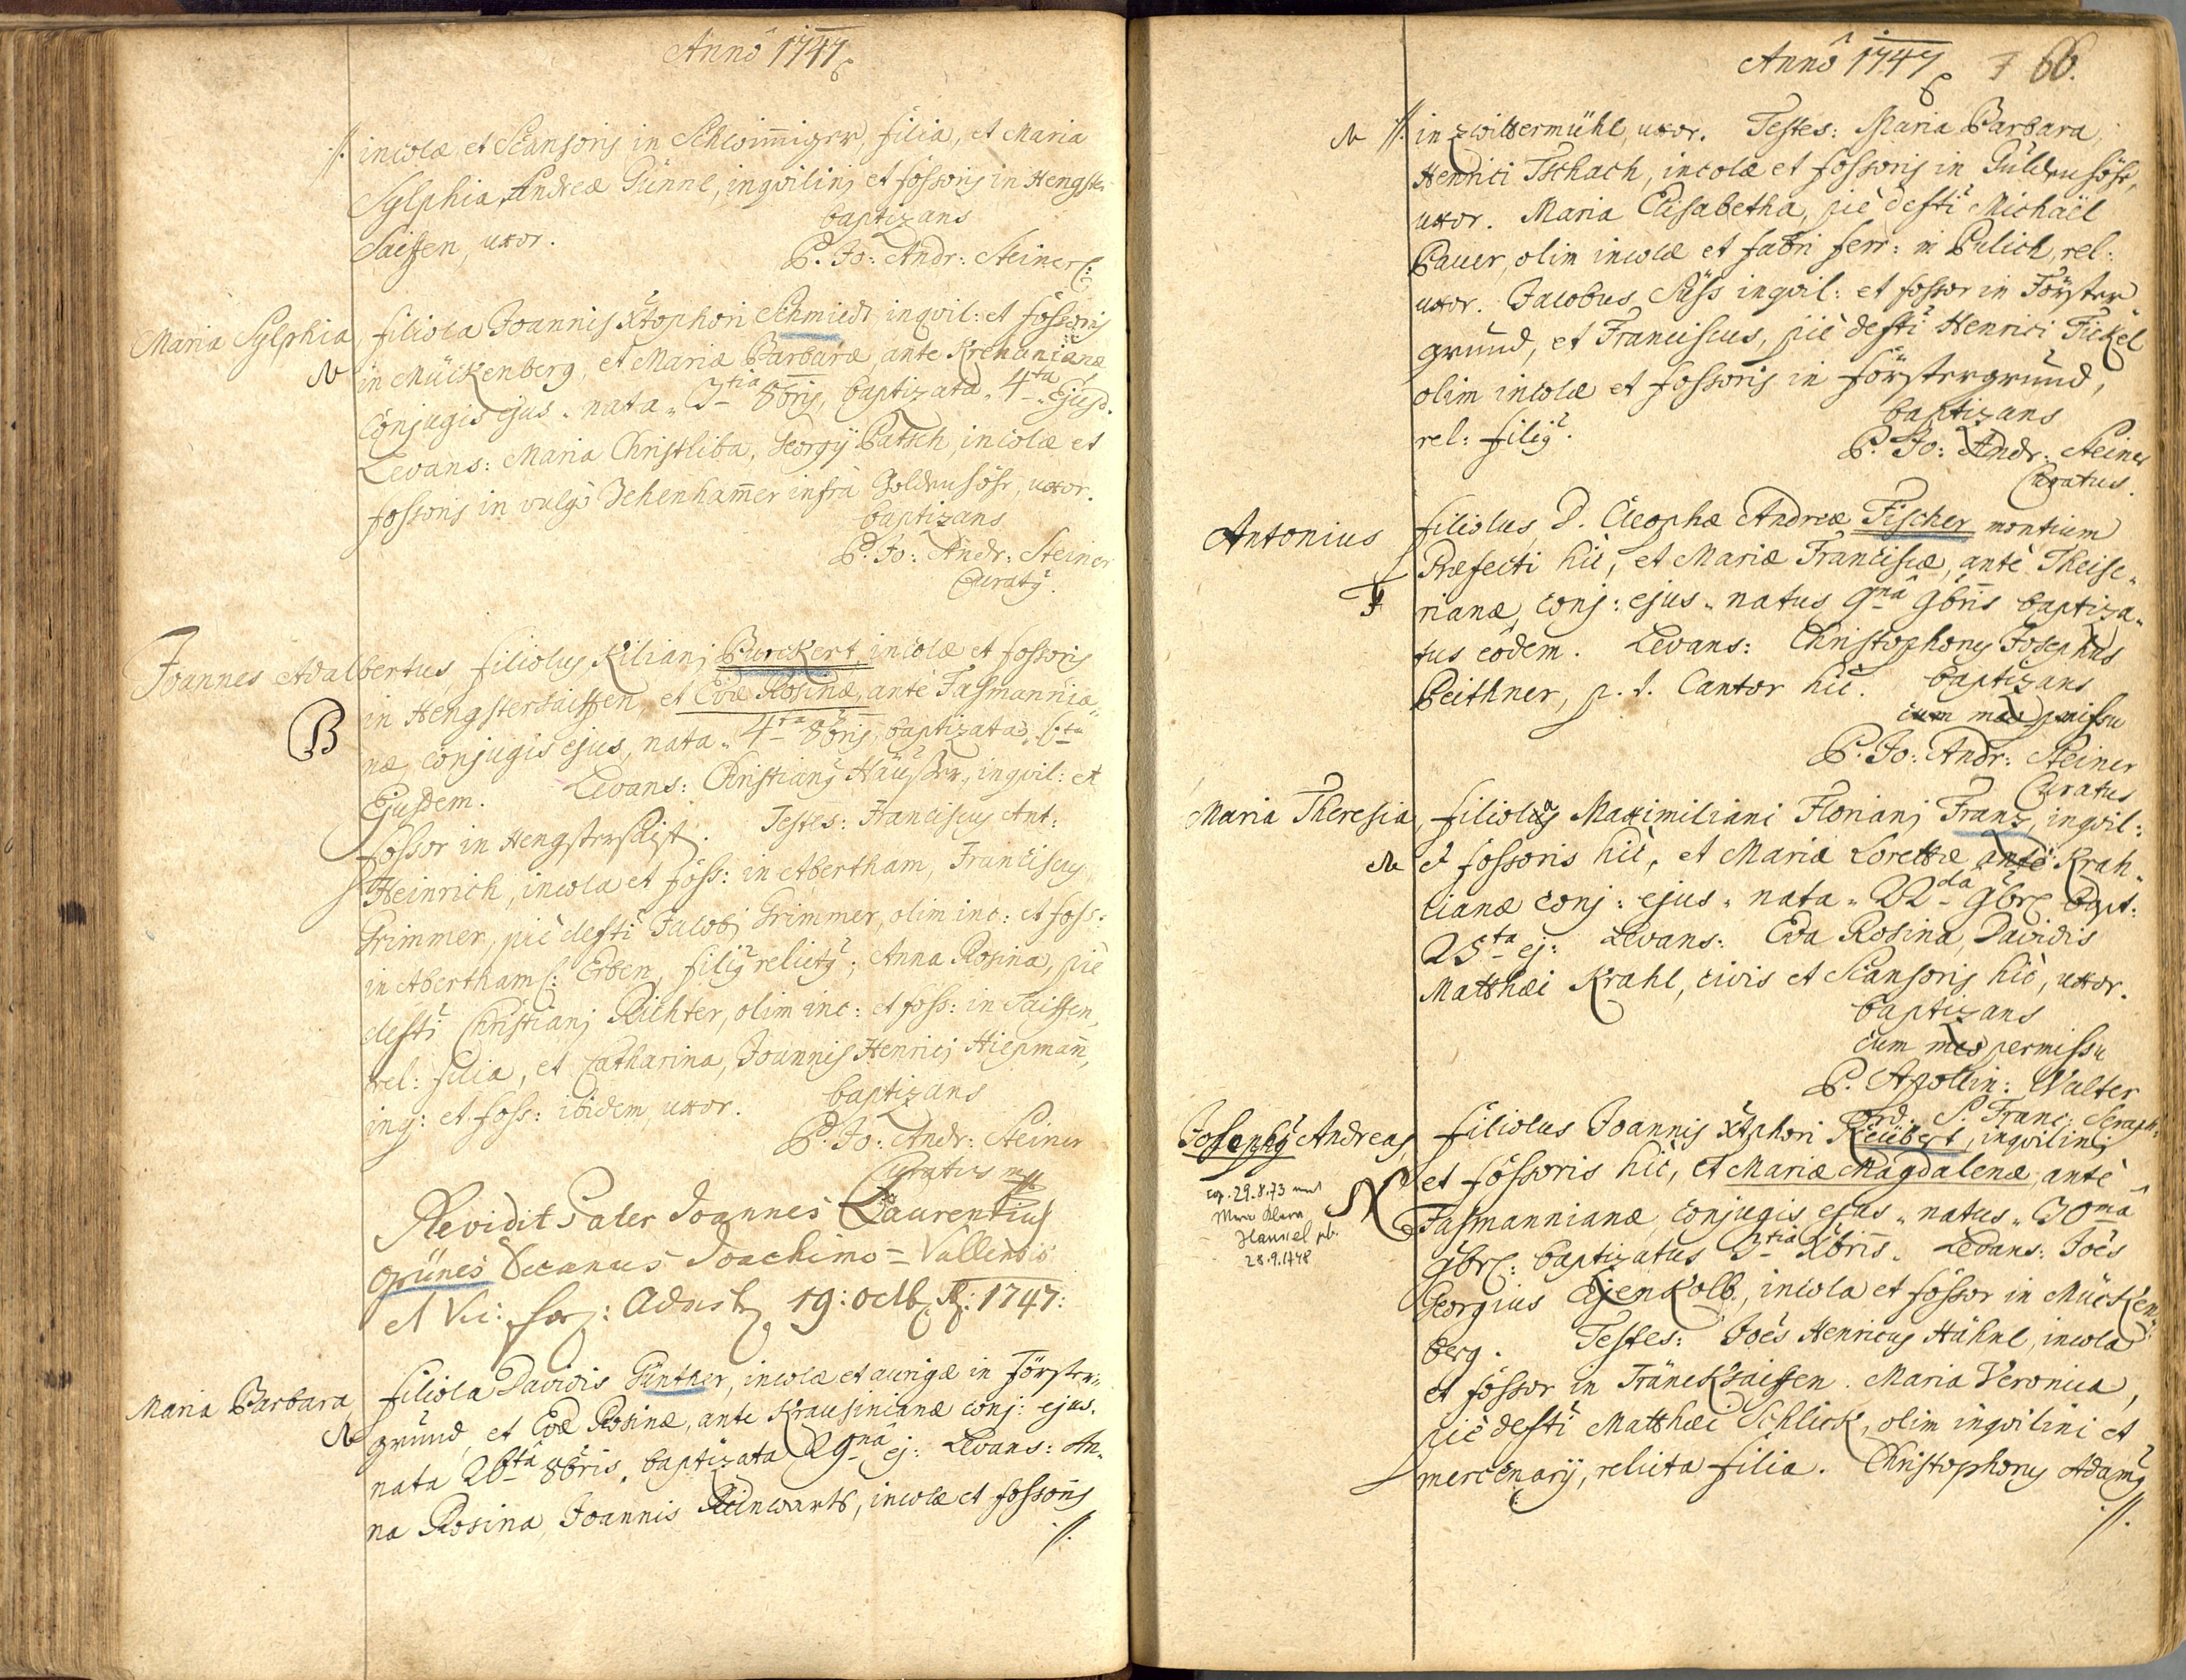 Anno 1747
·//. incolæ et Scansoris in Schwimiger, filia, et Maria
Sylphia, Andreæ Günnl, inqvilini et fossoris in Hengster
Saiffen, uxor.
baptizans
P. Jo: Andr: Steiner C:
Maria Sylphia, filiola Joannis Xtophori Schmiedt inqvil: et fossoris
in Mückenberg, et Mariæ Barbaræ, ante
conjugis ejus. nata. 3tia 8bris, baptizata. 4ta ejusd.
Levans: Maria Christliba, Georgÿ Patsch, incolæ et
fossoris in vulgo Zehenhamer infra Goldenhöhe, uxor.
baptizans
P. Jo: Andr: Steiner
Curatus.
Joannes Adalbertus, filiolus Kiliani Purckert, incolæ et fossoris
in Hengstersaiffen, et Evæ Rosinæ, ante Fasmannia,,
B
næ, conjugis ejus, nata. 4ta 8bris, baptizata. 6ta
Ejusdem. Levans: Christianus Häuser, inqvil: et
fossor in Hengsterseift. Testes: Franciscus Ant:
Heinrich, incola et foss: in Abertham, Franciscus
Grimmer, pie defti Jacobi Grimmer, olim inc: et foss:
in Abertham C: Erben, filius relictus; Anna Rosina, pie
defti Christiani Richter, olim inc: et foss: in Saiffen,
rel: filia, et Catharina, Joannis Henrici Hiepmañ,
inq: et foss: ibidem, uxor.
baptizans
P. Jo: Andr: Steiner
Curatus mp
Revidit Pater Joannes Laurentius
Grünes Decanus Joachimo-Vallensis
et Vic: for: 19: octb: A: 1747:
Maria Barbara filiola Davidis Günther, incolæ et aurigæ in Förster,,
N grund, et Evæ Rosinæ, ante Krausinianæ conj: ejus.
nata 26ta 8bris. baptizata 29na ej: Levans: An,,
na Rosina, Joannis Reinwarth, incolæ et fossoris
·//.
Anno 1747 66.
N //. in Zwittermühl, uxor. Testes: Maria Barbara,
Henrici Tschach, incolæ et fossoris in Güldenhöhe,
uxor. Maria Elisabetha, pie defti Michaël
Bauer, olim incolæ et fabri ferr: in Pulich, rel:
uxor. Jacobus Süss inqvil: et fossor in Förster
grund, et Franciscus, pie defti Henrici Fickel
olim incolæ et fossoris in förstergrund,
rel: filius.
baptizans
P. Jo: Andr: Steiner
Curatus.
Antonius filiolus D. Cleophæ Andreæ Fischer montium
Præfecti hic, et Mariæ Franciscæ, ante Theise,,
F rianæ, conj: ejus. natus 9na 9bris baptiza,,
tus eodem. Levans: Christophorus Josephus
Peithner, p. t. Cantor hic.
baptizans
cum meo pmissu
P. Jo: Andr: Steiner
Curatus
Maria Theresia, filiola Maximiliani Floriani Franz, inqvil:
N et fossoris hic, et Mariæ Lorettæ ante Krah,,
lianæ conj: ejus. nata. 22da 9bre: Bapt:
25ta ej: Levans: Eva Rosina, Davidis
Matthæi Krahl, civis et Scansoris hic, uxor.
baptizans
cum meo permissu
P. Apollin: Walter
Ord: S Franc: Seraph:
Josephus Andreas, filiolus Joannis Xtophori Reübert, inqvilini
et fossoris hic, et Mariæ Magdalenæ, ante
cop. 29.8.73 mit
Maria Clara
Hanuel gb.
28.9.1748
Fasmannianæ, conjugis ejus. natus. 30ma
9bre: baptizatus 3tia Xbris. Levans: Joës
Georgius Eÿenkolb, incola et fossor in Mücken,,
berg. Testes: Joës Henricus Hähnl, incola
et fossor in Fränckßaiffen. Maria Veronica,
pie defti Matthæi Schlick, olim inqvilini et
mercenarÿ, relicta filia. Christophorus Adamus
·//.